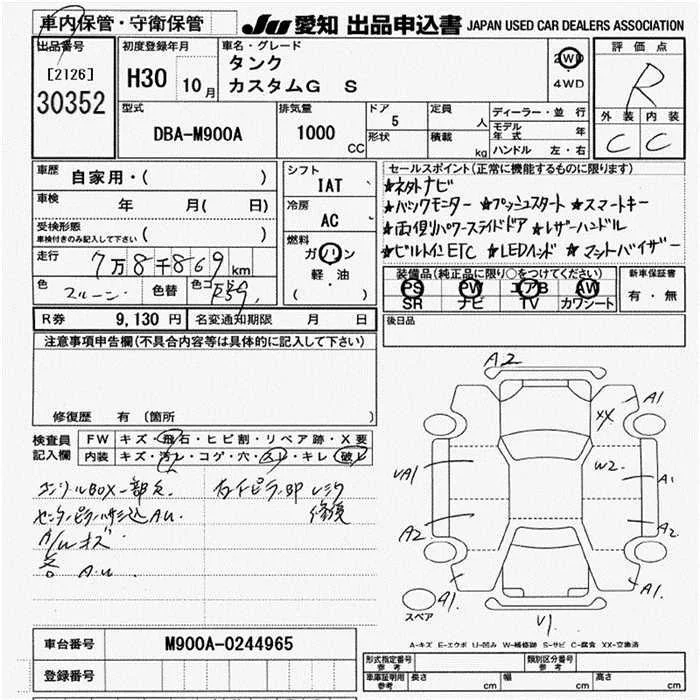 車内保管・守衛保管
JU 愛知 出品申込書 JAPAN USED CAR DEALERS ASSOCIATION
出品番号
[2126]
30352
初度登録年月
H30 10月
車名・グレード
タンク
カスタムG S
2WD
4WD
評価点
R
外装 内装
C C
型式
DBA-M900A
排気量
1000 CC
ドア
5
形状
定員 人
積載 kg
ディーラー・並行
モデル年式 年
ハンドル 左・右
車歴 自家用・( )
車検 年 月( 日)
受検形態
車検付きのみ記入して下さい ( )
走行 7万8千869km
色 色替 色コード
シフト
IAT
冷房
AC
燃料
ガソリン
軽・油
( )
セールスポイント(正常に機能するものに限ります)
★ネタトナビ
★パノラマモニター ★プッシュスタート ★スマートキー
★両側パワースライドドア ★レザーハンドル
★ビルトインETC ★LEDヘッド ★マットバイザー
装備品(純正品に限り○をつけてください)
PS PW エアB AW
SR ナビ TV カワシート
新車保証書
有・無
R券 9,130円 名変通知期限 月 日
後日品
注意事項申告欄(不具合内容等は具体的に記入して下さい)
修復歴 有 〔箇所 〕
検査員記入欄
FW キズ・飛石・ヒビ割・リペア跡・X要
内装 キズ・汚レ・コゲ・穴・スレ・キレ・破レ
コンソールBOX一部欠
センターピラー AU.
A/Uキズ
各 A.U
修復
A2
A1
XX
W2
UA1
A1
A2
A2
A1.
A1.
V1.
スペア
A-キズ E-エクボ U-凹み W-補修跡 S-サビ C-腐食 XX-交換済
車台番号 M900A-0244965
登録番号
形式指定番号 参考
類別区分番号 参考
車庫証明用 参考 長さ cm 幅 cm 高さ cm